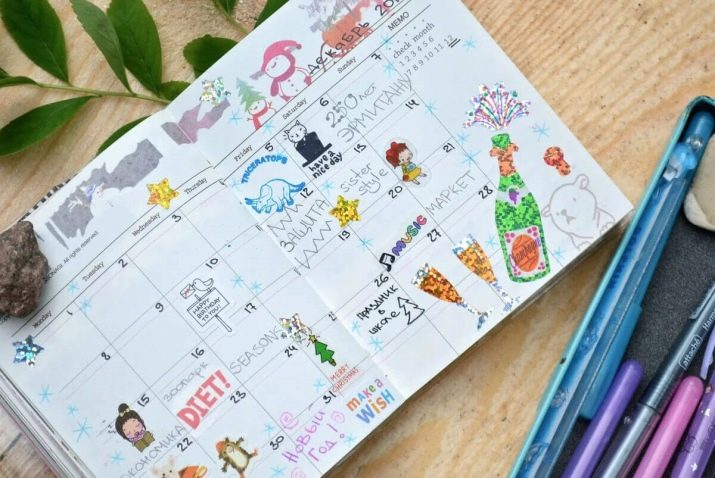 декабрь 201
MEMO
check month
1 2 3 4 5 6
7 8 9 10 11 12
Monday Tuesday Wednesday Thursday Friday Saturday Sunday
All rights reserved
1 2 3
5 6 7
TRICERATOPS
have a
nice day
250 лет
ЭРМИТАЖУ
8 9 10
12 14
HAPPY
BIRTHDAY
TO YOU!
ЗАЩИТА
sister
style
15 16 17
19 20
зоопарк
ЭКОНОМИКА
DIET!
SEASONS
MUSIC
МАРКЕТ
22 23 24
26 27 28
MERRY
CHRISTMAS
праздник
в
школе
30 31
НОВЫЙ
ГОД!
make a
WiSH
attache